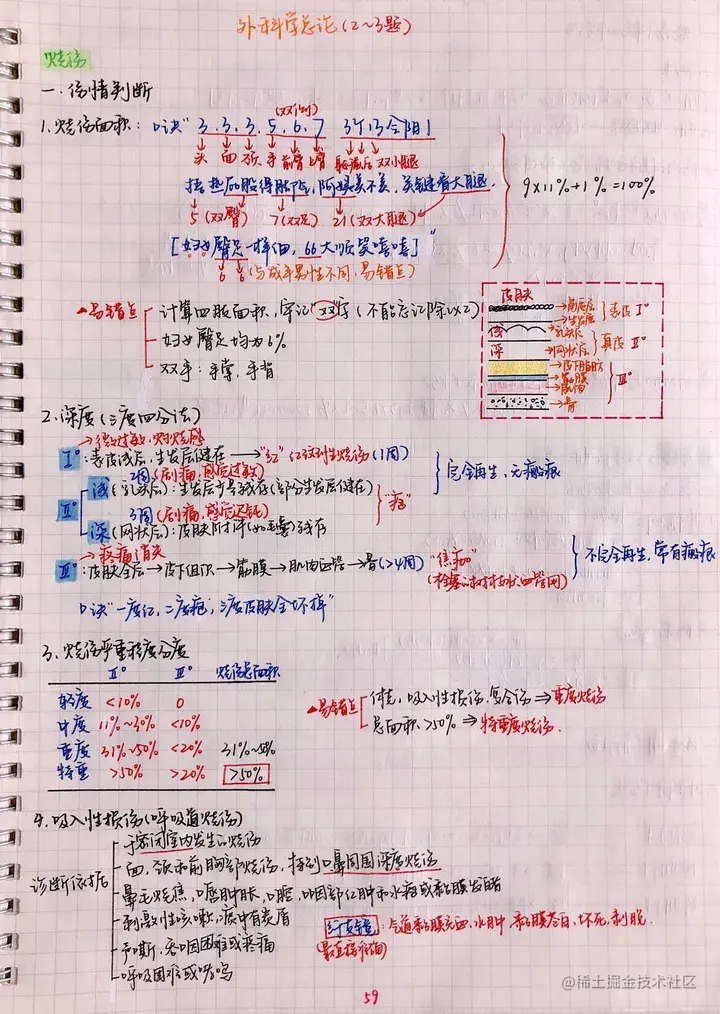 外科学总论(2~3题)
烧伤
一.伤情判断
(双倒)
1.烧伤面积: 口诀" 3.3.3.5.6.7 3
头 面 颈 手 前臂 上臂 躯 双小腿
5(双臀) 7(双足) 21(双大腿)
9×11%+1%=100%
[妇女臀足一样细, 66大顺笑嘻嘻]"
6 6 (与成年男性不同,易错点)
易错点
计算四肢面积,牢记"双"字(不能忘记除以2)
妇女臀足均为6%
双手:手掌,手背
皮肤
角层
生发层
表皮 I°
浅
乳头层
深
网状层
真皮 II°
皮下脂肪
筋膜
肌肉
骨
III°
2.深度(三度四分法)
→微过敏,灼烧感
I°:表皮浅层,生发层健在→"红"红斑性烧伤(1周)
2周(剧痛,感觉过敏)
浅(乳头层):生发层少量残存(部分生发层健在)
完全再生,无瘢痕
II°
"疱"
3周(剧痛,感觉迟钝)
深(网状层):皮肤附件(如毛囊)残存
→疼痛消失
III°:皮肤全层→皮下组织→筋膜→肌肉血管→骨(>4周) "焦痂"
(栓塞的树枝状血管网)
不完全再生,常有瘢痕
口诀"一度红,二度疱,三度皮肤全坏掉"
3.烧伤严重程度分度
II° III° 烧伤总面积
轻度 <10% 0
中度 11%~30% <10%
重度 31%~50% <20% 31%~50%
特重 >50% >20% >50%
易错点
休克,吸入性损伤.复合伤⇒重度烧伤
总面积>50%⇒特重度烧伤.
4.吸入性损伤(呼吸道烧伤)
诊断依据
于密闭室内发生的烧伤
面,颈和前胸部烧伤,特别口鼻周围深度烧伤
鼻毛烧焦,口唇肿胀,口腔,口咽部红肿和水疱或黏膜发白
刺激性咳嗽,痰中有炭屑
声嘶,吞咽困难或疼痛
呼吸困难或哮鸣
纤支镜:气道黏膜充血,水肿 黏膜苍白,坏死,剥脱.
(最直接准确)
59
@稀土掘金技术社区